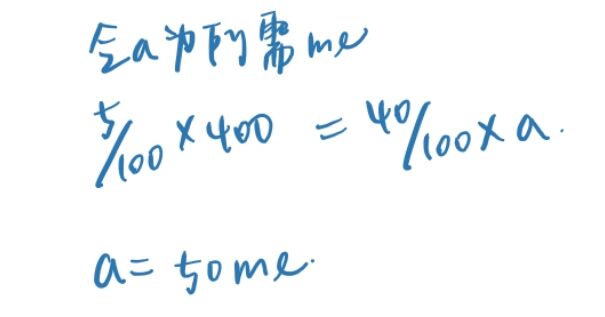 令a为所需ml
5/100 × 400 = 40/100 × a.
a = 50ml.